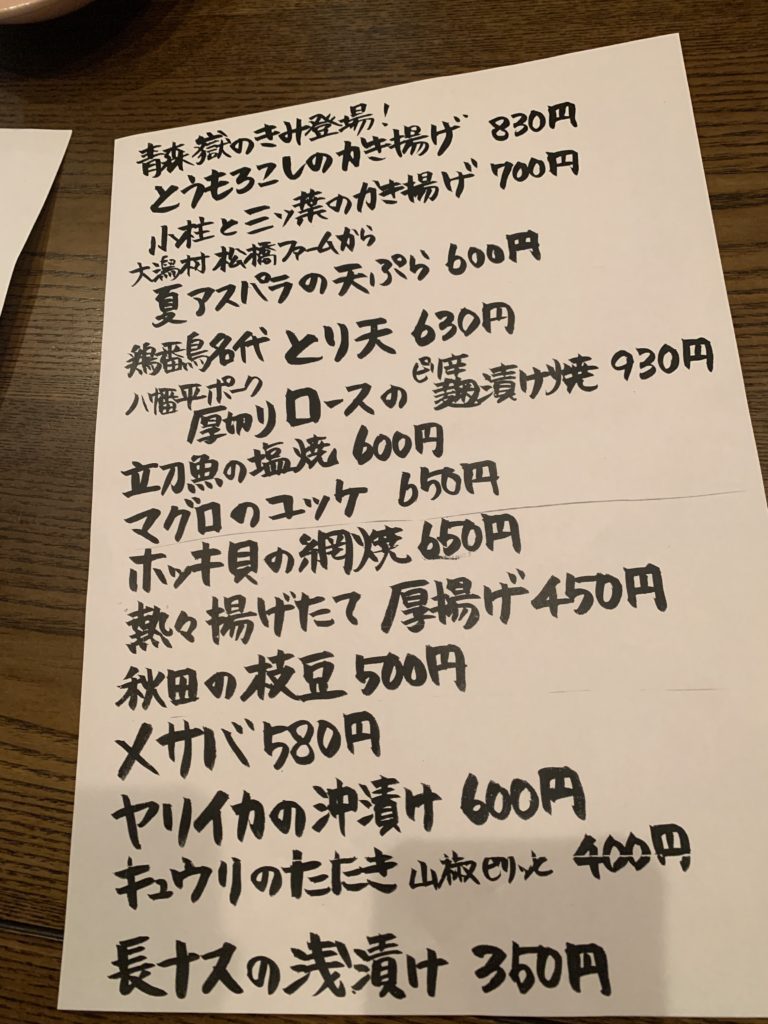 青森嶽のきみ登場!
とうもろこしのかき揚げ 830円
小柱と三ッ葉のかき揚げ 700円
大潟村 松橋ファームから
夏アスパラの天ぷら 600円
鶏番鳥名代 とり天 630円
八幡平ポーク 厚切りロースの ピリ辛 麹漬け焼 930円
立刀魚の塩焼 600円
マグロのユッケ 650円
ホッキ貝の網焼 650円
熱々揚げたて 厚揚げ 450円
秋田の枝豆 500円
〆サバ 580円
ヤリイカの沖漬け 600円
キュウリのたたき 山椒ピリッと 400円
長ナスの浅漬け 350円